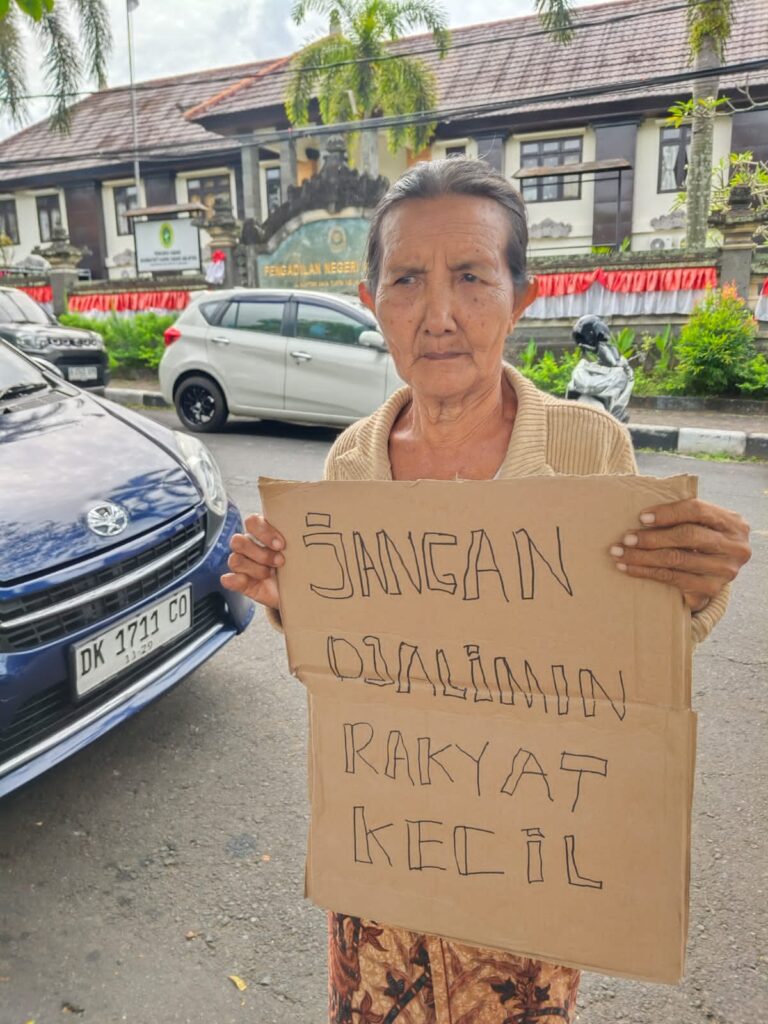 PENGADILAN NEGERI
JANGAN
DIALIMIN
RAKYAT
KECIL
DK 1711 CO
11·29